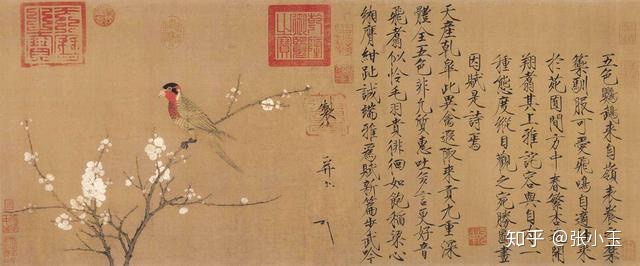 五色鸚鵡來自嶺表養之禁
籞馴服可愛飛鳴自適往來
於苑囿間方中春繁杏遍開
翔翥其上雅詫容與自有一
種態度縱目觀之宛勝圖畫
因賦是詩焉
天產乾皐此異禽遐陬來貢九重深
體全五色非凡質惠吐多言更好音
飛翥似憐毛羽貴徘徊如飽稻粱心
緗膺紺趾誠端雅為賦新篇步武吟
知乎 @张小玉